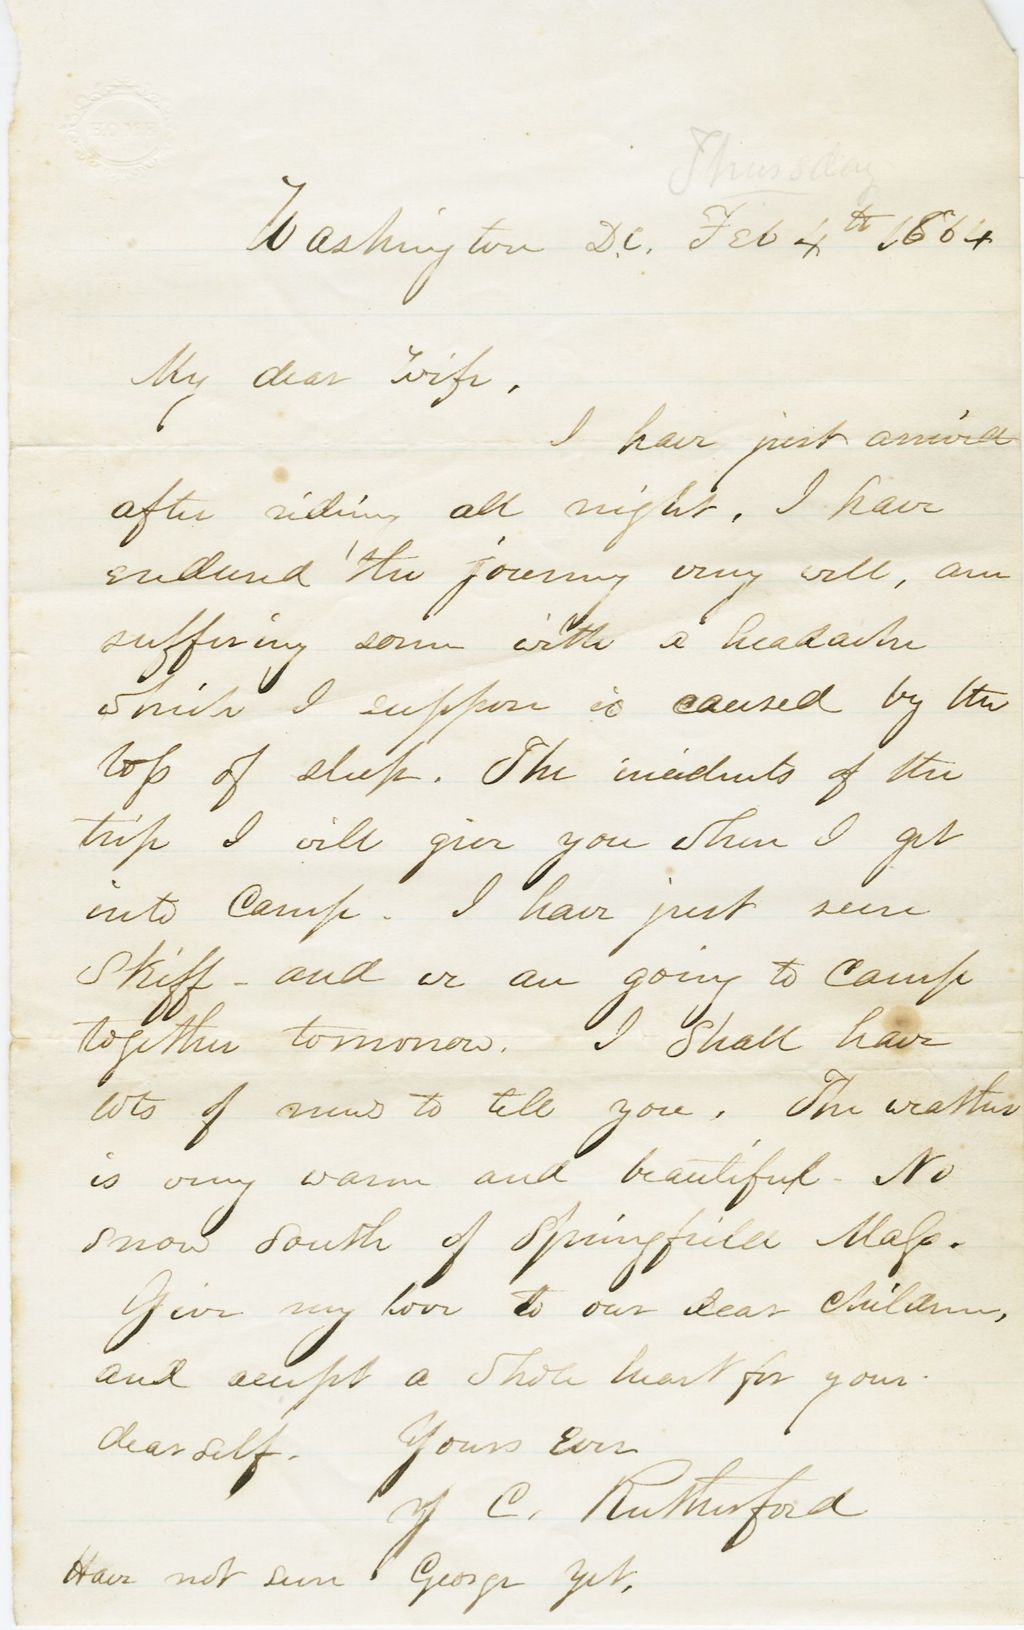 Thursday
Washington D.C. Feb 4th 1864
My dear Wife,
I have just arrived
after riding all night. I have
endured the journey very well, am
suffering some with a headache
which I suppose is caused by the
loss of sleep. The incidents of the
trip I will give you when I get
into Camp. I have just seen
Skiff - and we are going to Camp
together tomorrow. I shall have
lots of news to tell you. The weather
is very warm and beautiful - No
snow south of Springfield Mass.
Give my love to our dear children,
and accept a whole heart for your
dear self. Yours Ever
C. Rutherford
Have not seen George yet.